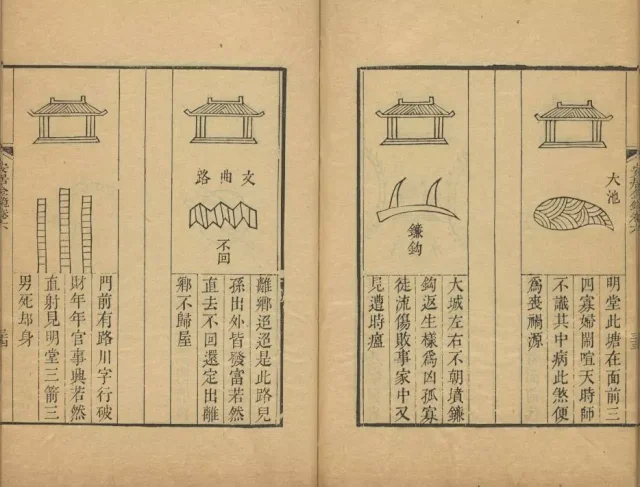 大池
明堂此塘在面前三
四寡婦鬧喧天時師
不識其中病此煞便
為喪禍源
鐮鈎
大城左右不朝墳鐮
鈎返生樣為凶孤寡
徒流傷敗事家中又
見遭時瘟
文曲路
不回
離鄉迢迢是此路兒
孫出外皆發富若然
直去不回還定出離
鄉不歸屋
門前有路川字行破
財年年官事興若然
直射見明堂三箭三
男死却身